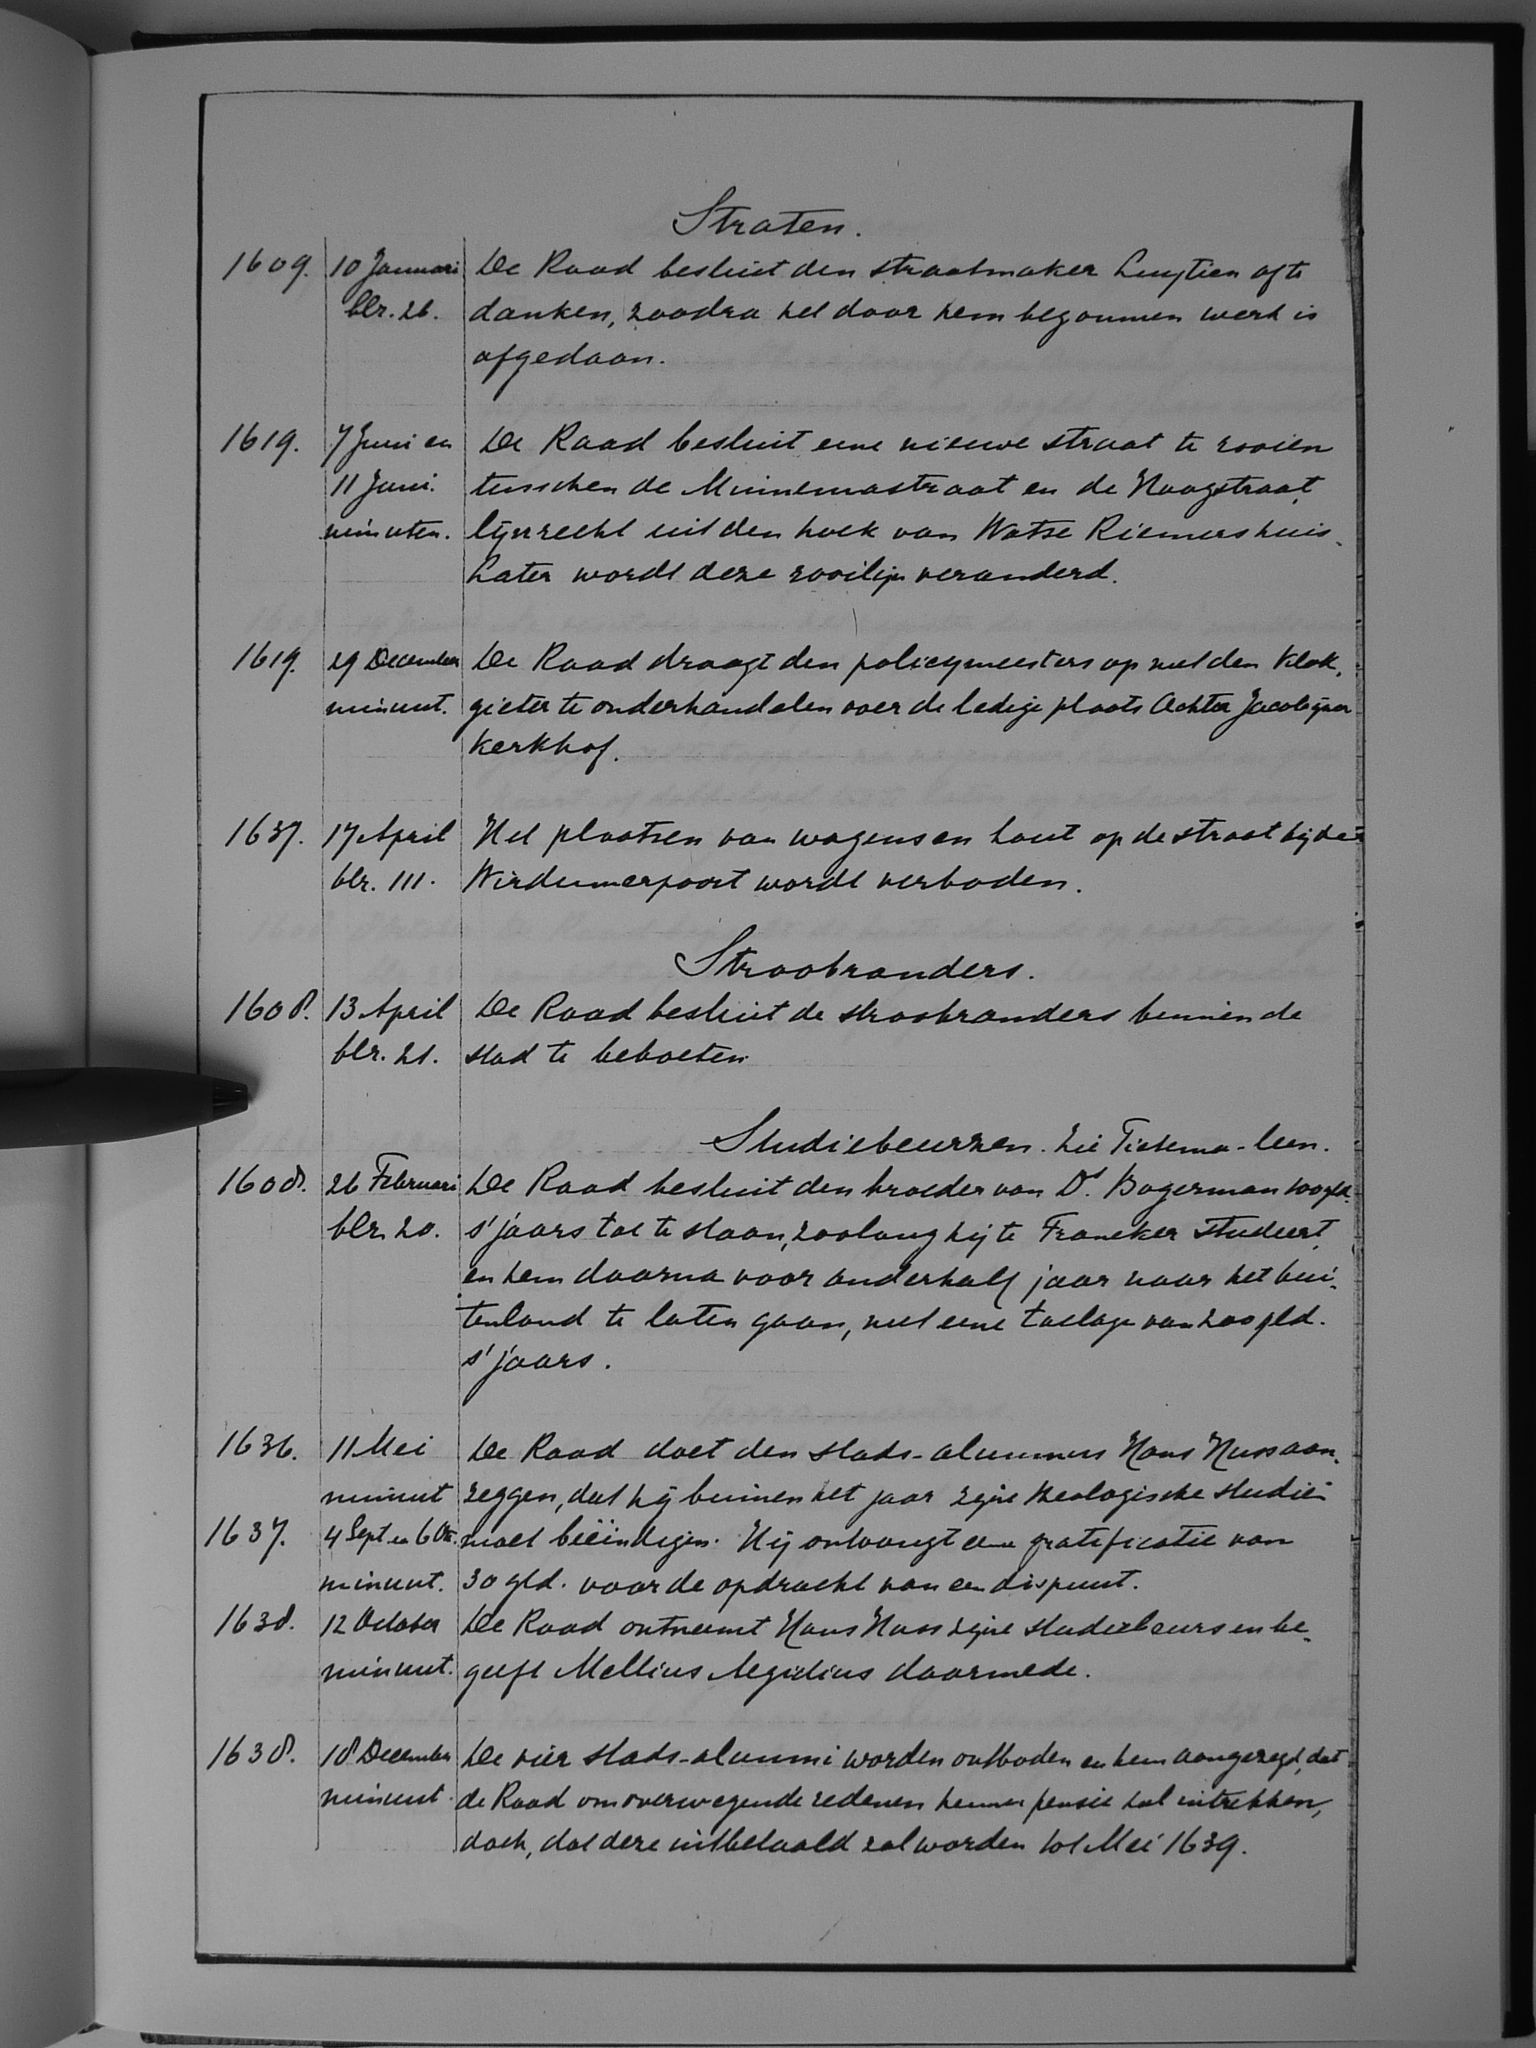 Straten.
1609. 10 Januari De Raad besluit den straatmaker Luytien af te
blr. 26. danken, zoodra het door hem begonnen werk is
afgedaan.
1619. 7 Juni en De Raad besluit eene nieuwe straat te rooien
11 Juni. tusschen de Minnemastraat en de Hoogstraat,
minuten. lijnrecht uit den hoek van Watse Riemers huis.
Later wordt deze rooilijn veranderd.
1619. 29 December De Raad draagt den policymeesters op met den klok-
minuut. gieter te onderhandelen over de ledige plaats Achter Jacobijner
kerkhof.
1637. 17 April Het plaatsen van wagens en hout op de straat bij de
blr. 111. Wirdumerpoort wordt verboden.
Stroobranders.
1608. 13 April De Raad besluit de stroobranders binnen de
blr. 21. stad te beboeten
Studiebeurzen. Zie Tietema-leen.
1608. 26 Februari De Raad besluit den broeder van Ds. Bogerman 100 gld.
blr. 20. s'jaars toe te staan, zoolang hij te Franeker studeert,
en hem daarna voor anderhalf jaar naar het bui-
tenland te laten gaan, met eene toelage van 200 gld.
s'jaars.
1636. 11 Mei De Raad doet den stads-alumnus Hans Nuss aan-
minuut zeggen, dat hij binnen het jaar zijne theologische studiën
1637. 4 Sept en 6 Oct. moet beëindigen. Hij ontvangt eene gratificatie van
minuut. 30 gld. voor de opdracht van een dispuut.
1638. 12 October De Raad ontneemt Hans Nuss zijne studiebeurs en be-
minuut. geeft Mellius Aegidius daarmede.
1638. 18 December De vier stads-alumni worden ontboden en hem aangezegd, dat
minuut. de Raad om overwegende redenen hunne pensie zal intrekken,
doch, dat deze uitbetaald zal worden tot Mei 1639.